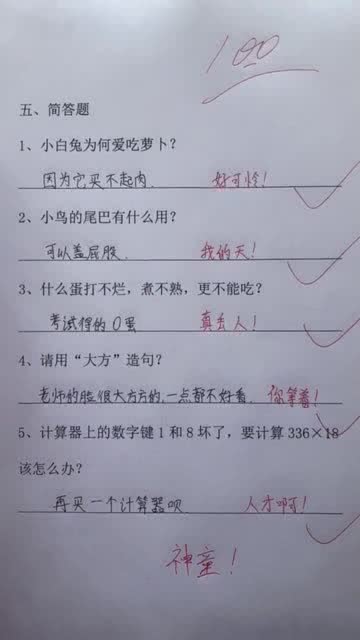 100
五、简答题
1、小白兔为何爱吃萝卜？
因为它买不起肉. 好可怜！
2、小鸟的尾巴有什么用？
可以盖屁股. 我的天！
3、什么蛋打不烂，煮不熟，更不能吃？
考试得的0蛋 真丢人！
4、请用“大方”造句？
老师的脸很大方方的.一点都不好看. 你等着！
5、计算器上的数字键1和8坏了，要计算336×18
该怎么办？
再买一个计算器呗 人才啊！
神童！